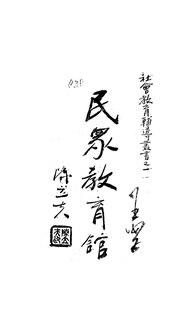 社會教育輔導叢書之一
民眾教育館
陳立夫